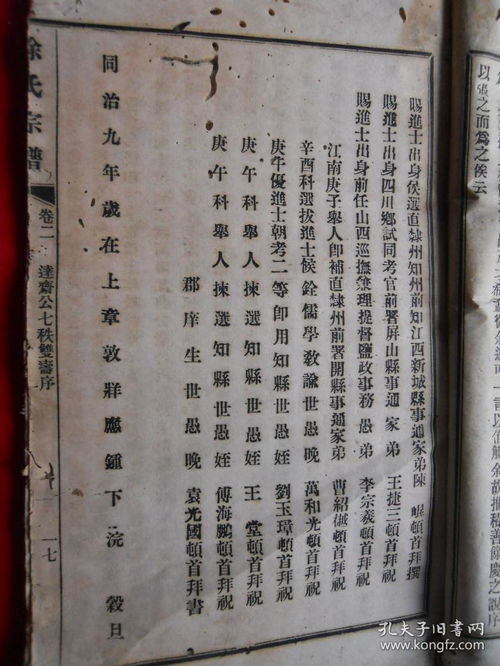 以張之而爲之侯云
賜進士出身侯選直隸州知州前知江西新城縣事通家弟陳 頓首拜撰
賜進士出身四川鄉試同考官前署屏山縣事通家弟 王捷三頓首拜祝
賜進士出身前任山西巡撫兼理提督鹽政事務愚弟 李宗羲頓首拜祝
江南庚子舉人卽補直隸州前署開縣事通家弟 曹紹樾頓首拜祝
辛酉科選拔進士候銓儒學教諭世愚晚 萬和光頓首拜祝
庚午優進士朝考二等卽用知縣世愚姪 劉玉璋頓首拜祝
庚午科舉人揀選知縣世愚姪 王 堂頓首拜祝
庚午科舉人揀選知縣世愚姪 傅海鵬頓首拜祝
郡庠生世愚晚 袁光國頓首拜書
同治九年歲在上章敦牂應鍾下浣 穀旦
徐氏宗譜
卷二 達齋公七秩雙壽序
一七
孔夫子旧书网